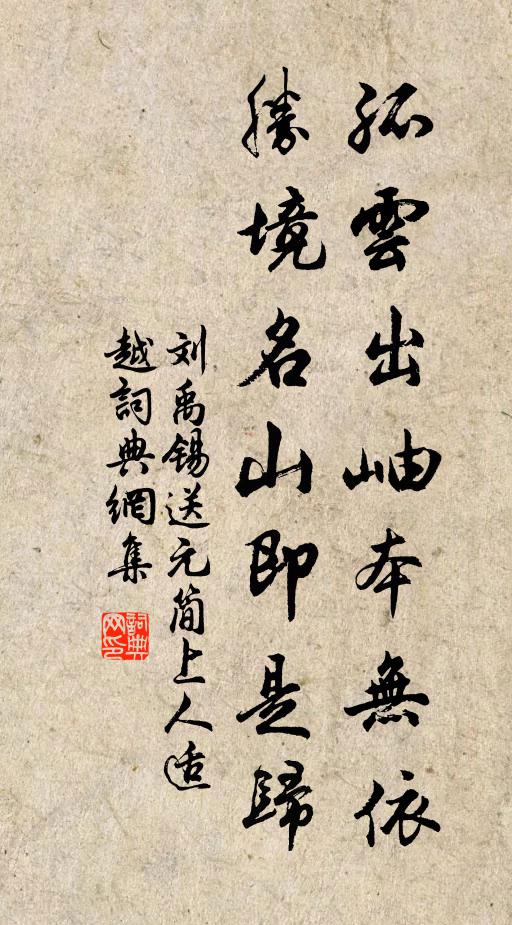 孤雲出岫本無依
勝境名山即是歸
刘禹锡送元简上人适
越詞典網集
詞典
网印